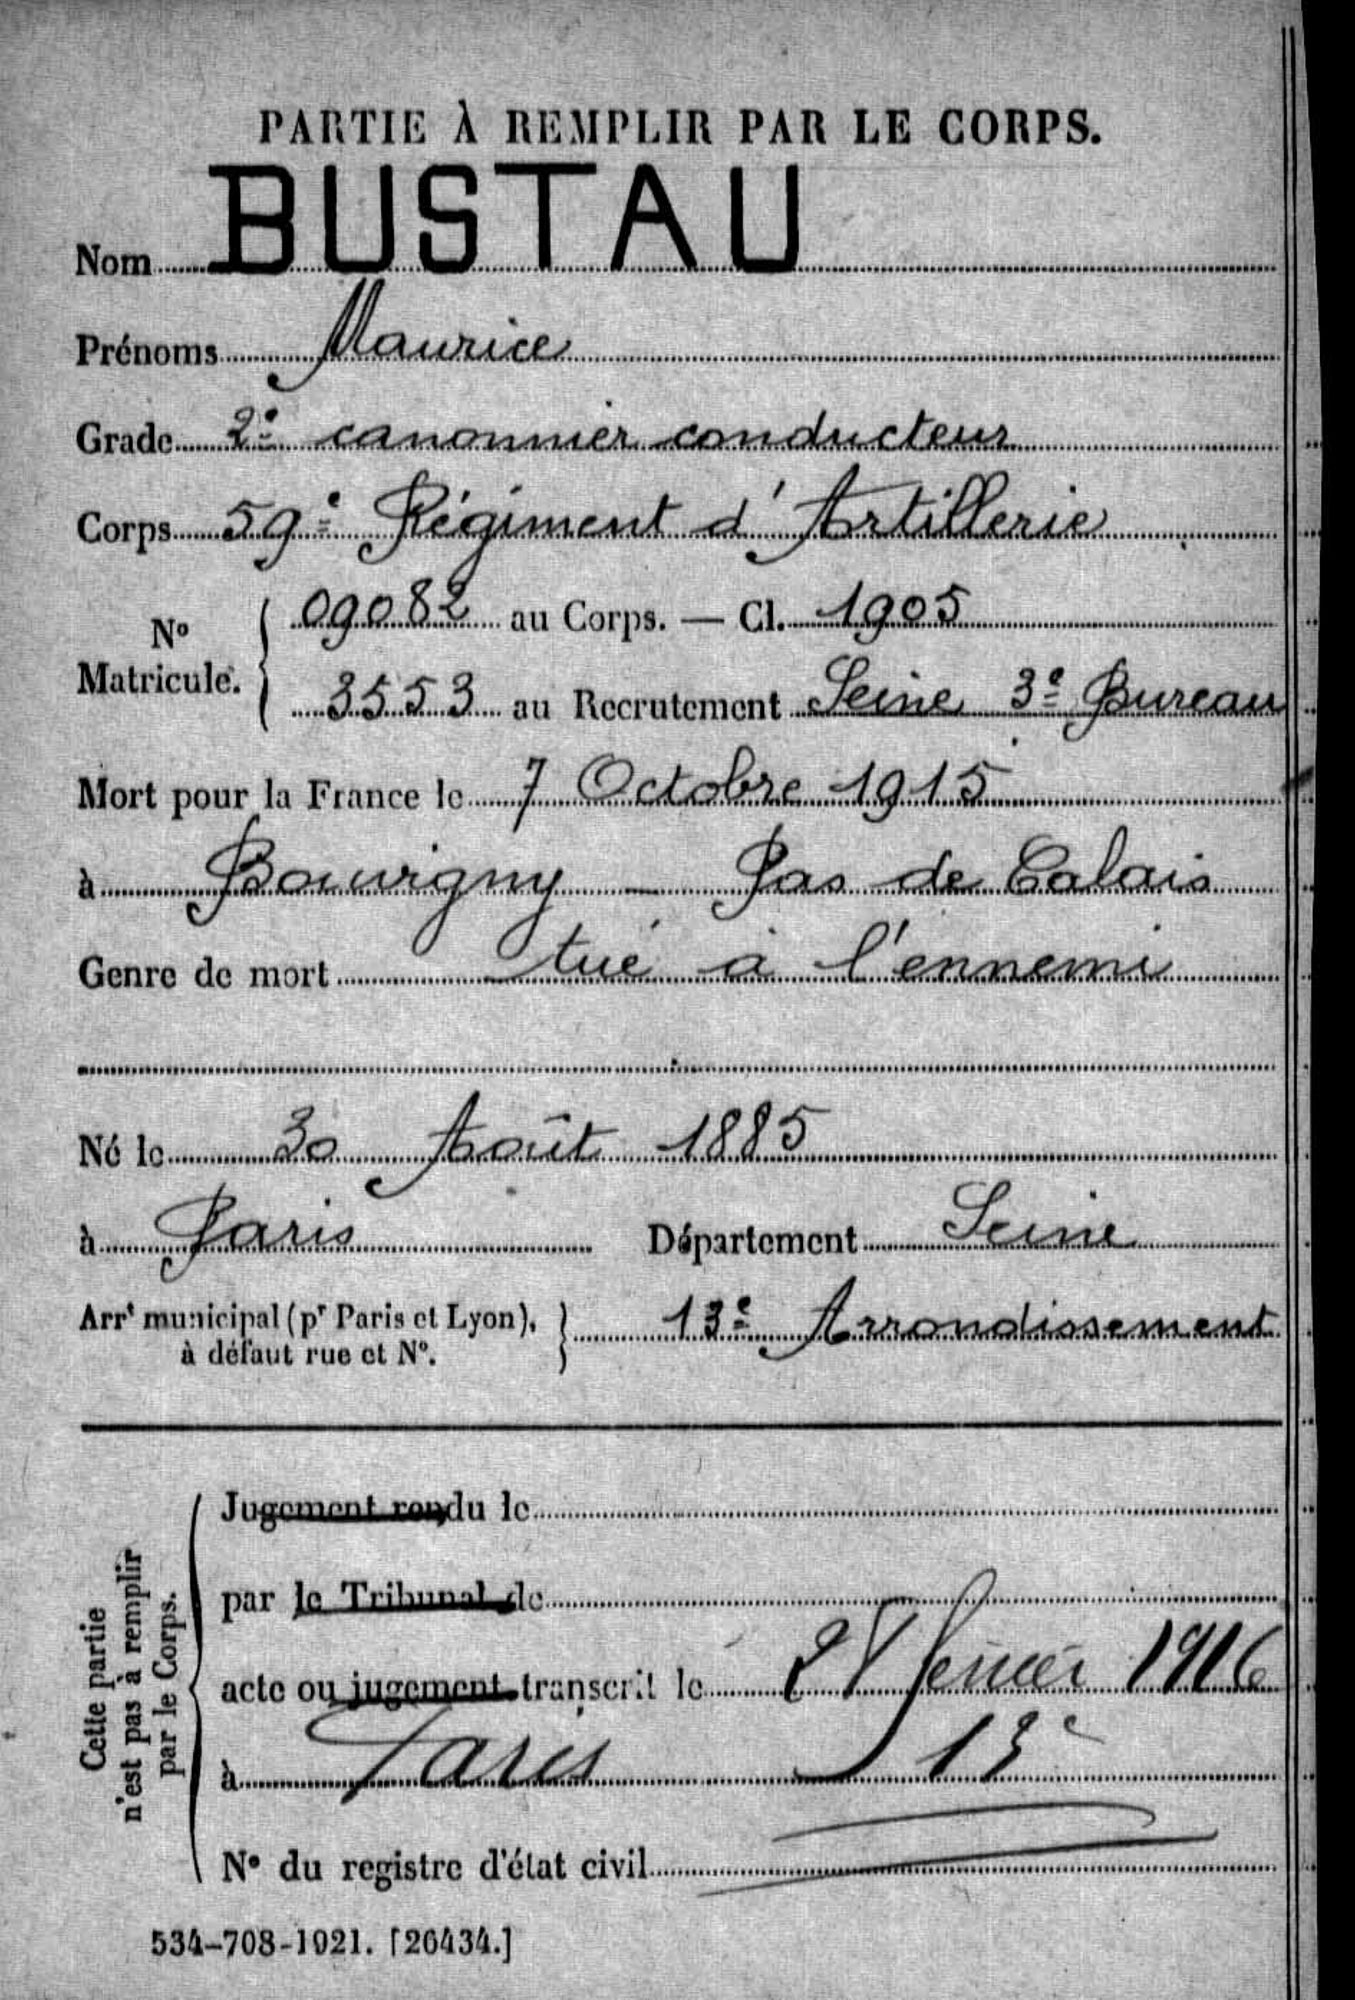 PARTIE À REMPLIR PAR LE CORPS.
Nom BUSTAU
Prénoms Maurice
Grade 2e canonnier conducteur
Corps 59e Régiment d'Artillerie
No Matricule. 09082 au Corps. — Cl. 1905
3553 au Recrutement Seine 3e Bureau
Mort pour la France le 7 Octobre 1915
à Bouvigny - Pas de Calais
Genre de mort tué à l'ennemi
Né le 30 Août 1885
à Paris Département Seine
Arrt municipal (pr Paris et Lyon), 13e Arrondissement
à défaut rue et No.
Cette partie
n'est pas à remplir
par le Corps.
Jugement rendu le
par le Tribunal de
acte ou jugement transcrit le février 1916
à Paris 13e
No du registre d'état civil
534-708-1921. [26434.]